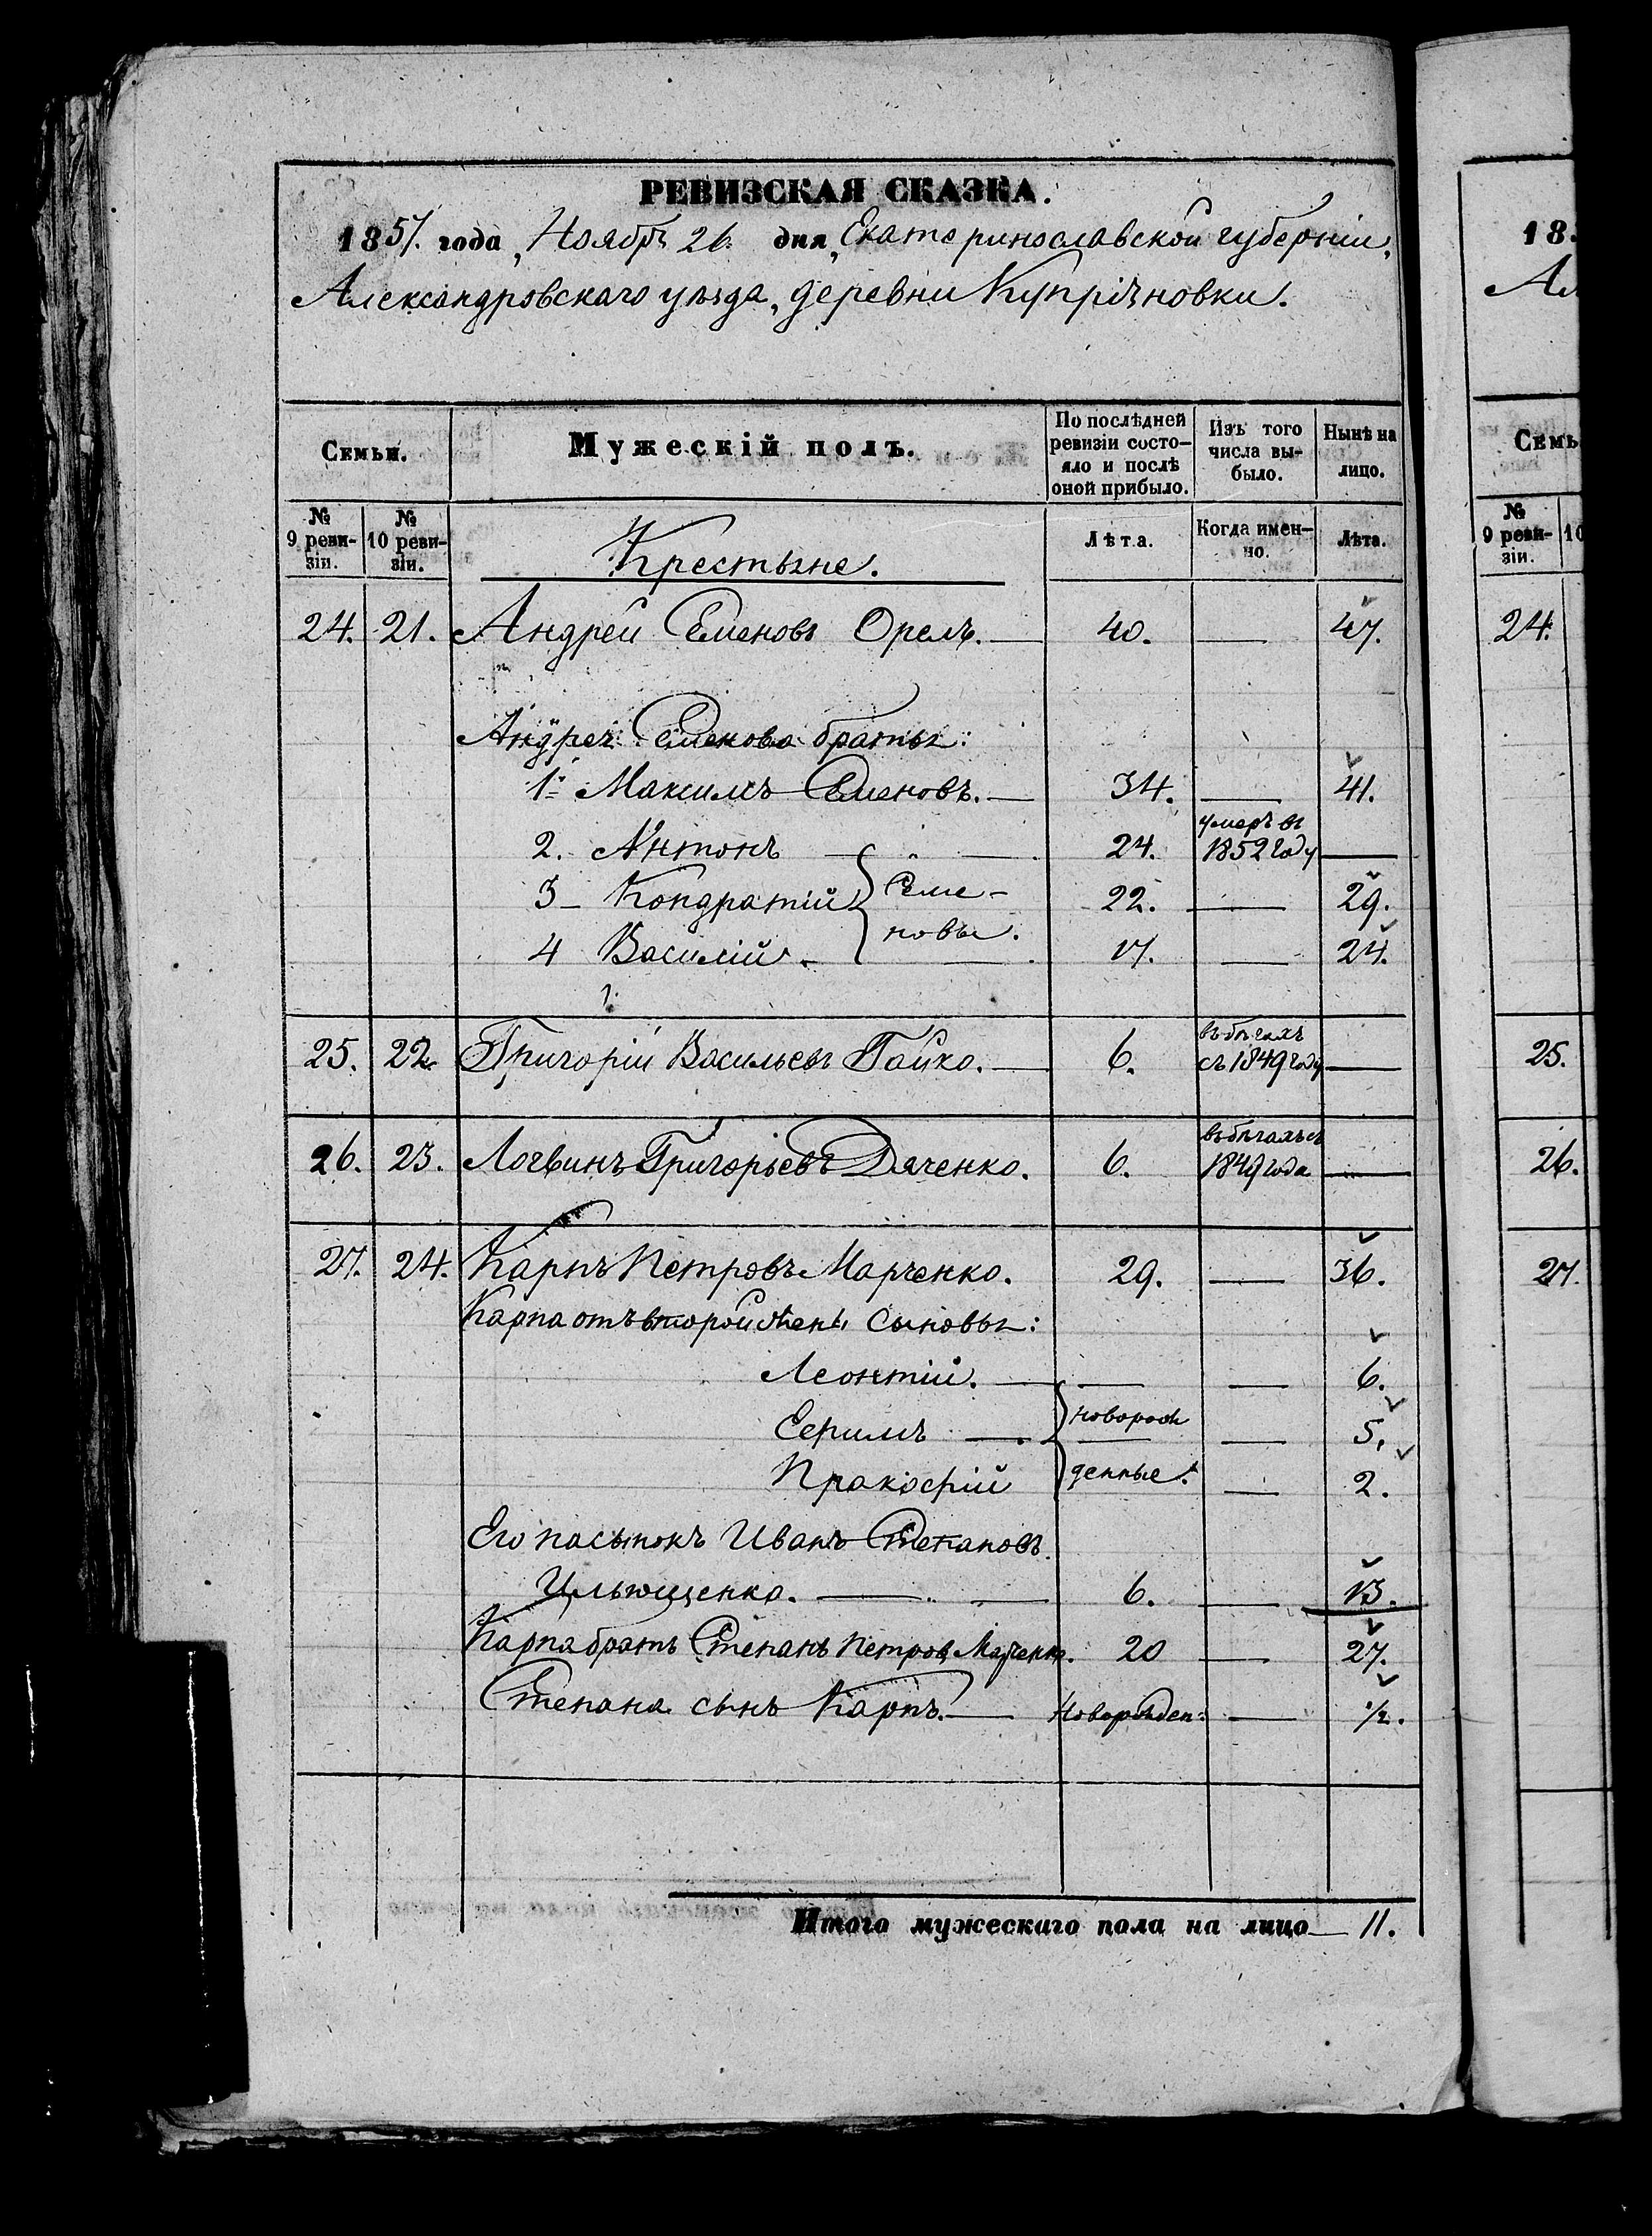 РЕВИЗСКАЯ СКАЗКА.
1857. года, Ноябрь 26 дня, Екатеринославской губерніи,
Александровскаго уѣзда, деревни Купріяновки.
Семьи. Мужескій полъ. По послѣдней ревизіи состояло и послѣ оной прибыло. Изъ того числа выбыло. Нынѣ на лицо.
№ 9 ревизіи. № 10 ревизіи. Крестьяне. Лѣта. Когда именно. Лѣта.
24. 21. Андрей Семеновъ Орелъ. — 40. — 47.
Андрея Семенова братья:
1й Максимъ Семеновъ. — 34. — 41.
2. Антонъ — „ — 24. умеръ въ 1852 году —
3 — Кондратій } Семе- 22. — 29.
4 Василій. } новы. — 17. — 24.
25. 22. Григорій Васильевъ Гайко. — 6. въ бѣгахъ съ 1849 году —
26. 23. Логвинъ Григорьевъ Дяченко. 6. въ бѣгахъ съ 1849 года —
27. 24. Карпъ Петровъ Марченко. 29. — 36.
Карпа отъ второй жены сыновья:
Леонтій. — — — 6.
Ефимъ —. } новорож — 5.
Пракофій } денные. — 2.
Его пасынокъ Иванъ Степановъ
Ильющенко. — 6. — 13.
Карпа братъ Степанъ Петров Марченко. 20 — 27.
Степана сынъ Карпъ. — Новорожден: — 1/2.
Итого мужескаго пола на лицо — 11.
18
Ал
Семь
№ 9 ревизіи. 10
24.
25.
26.
27.